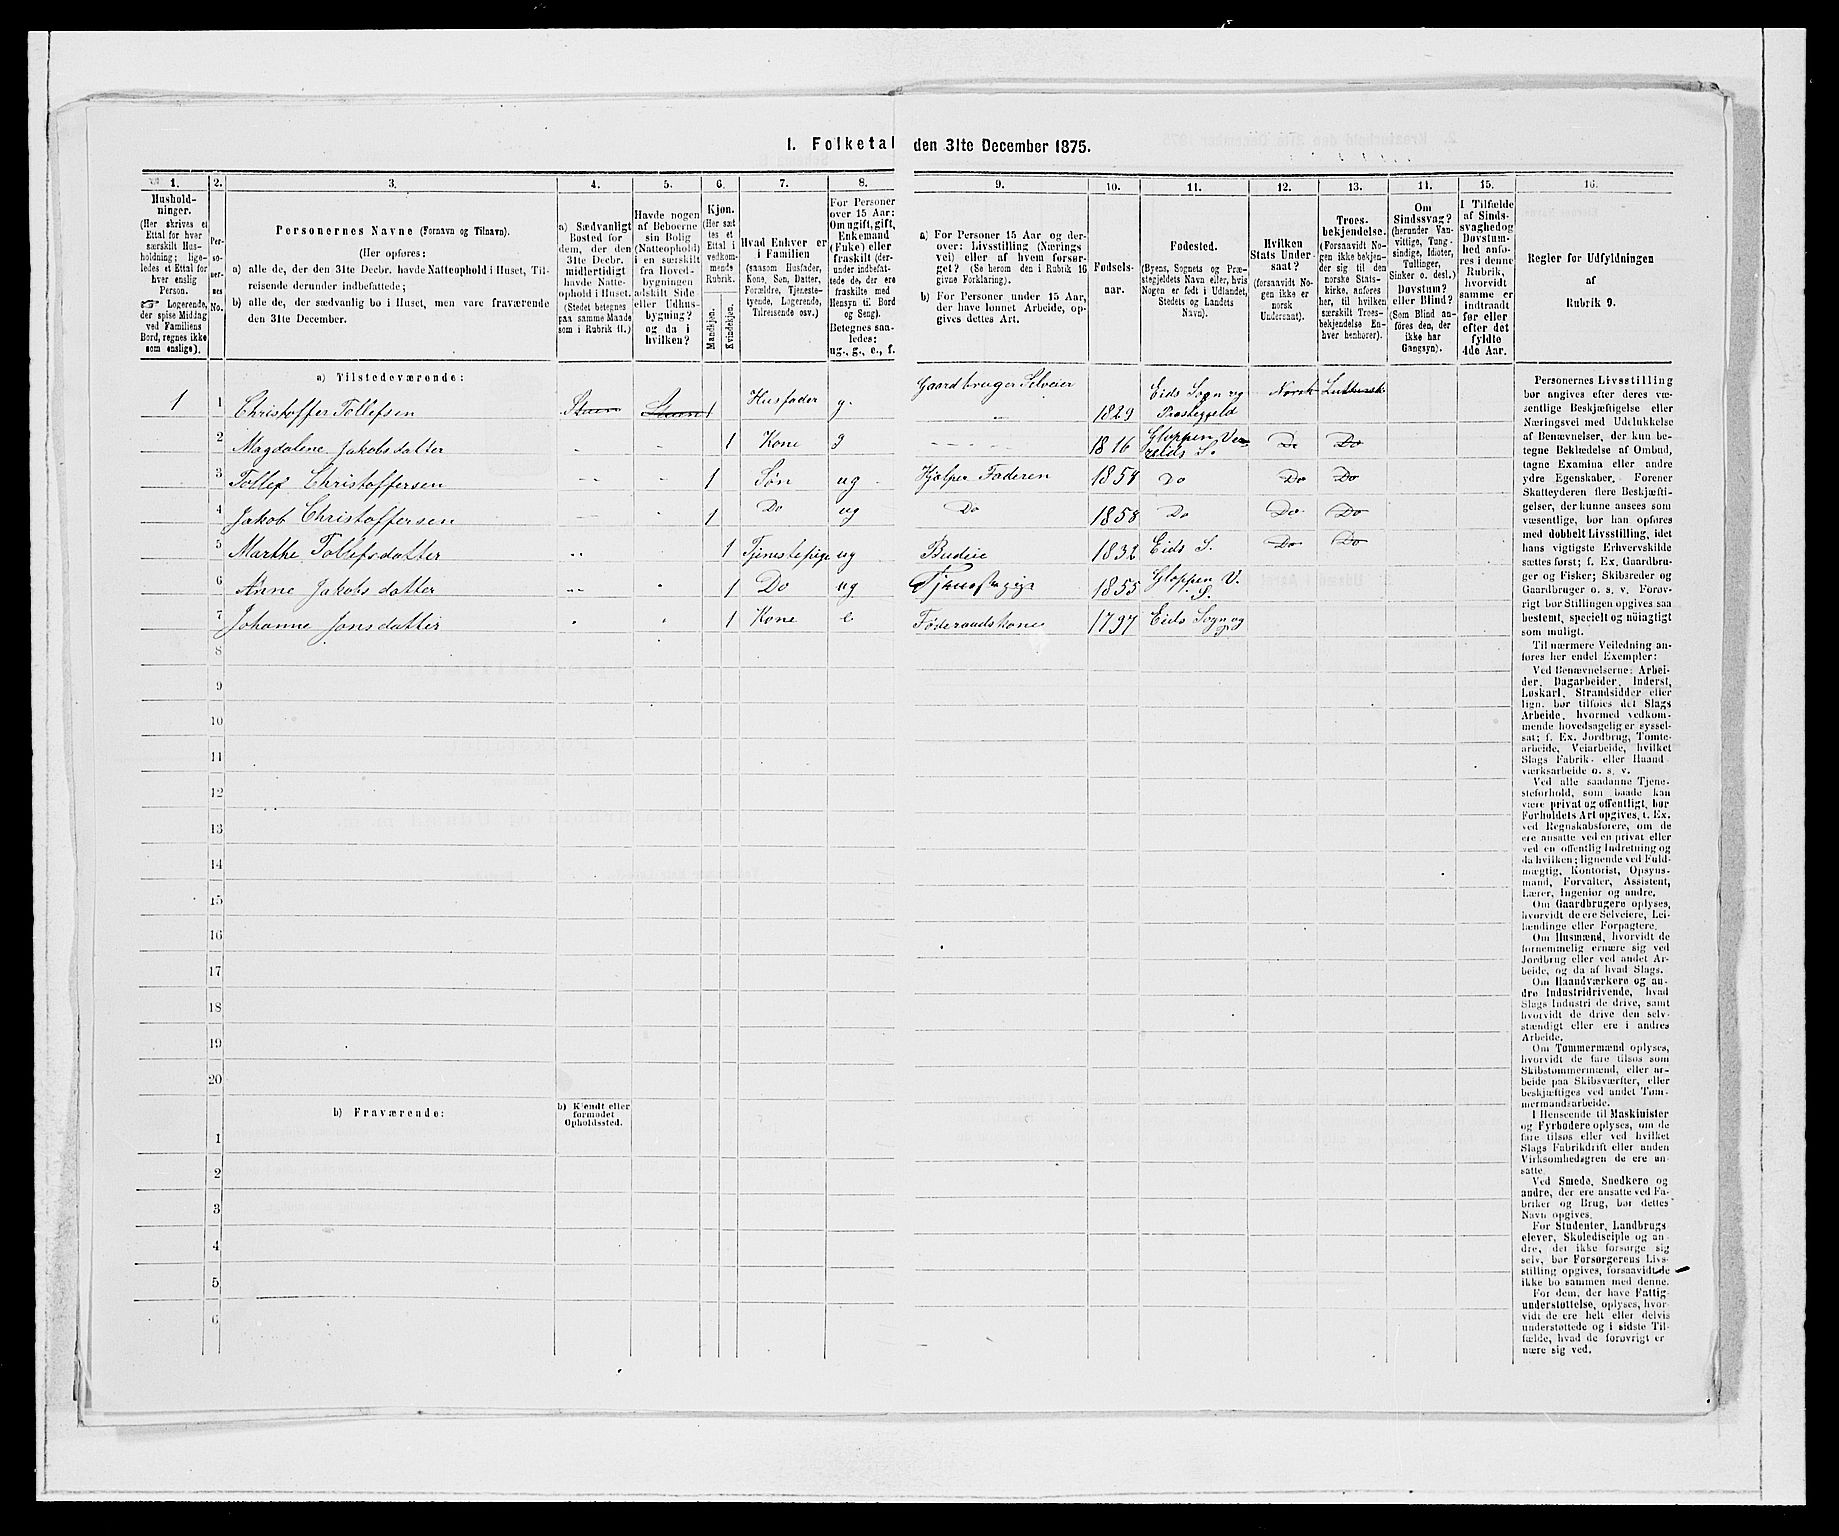 I. Folketal den 31te December 1875.
1.
Hushold-
ninger.
(Her skrives et
Ettal for hver
særskilt Hus-
holdning; lige-
ledes et Ettal for
hver enslig
Person.
☞ Logerende,
der spise Middag
ved Familiens
Bord, regnes ikke
som enslige).
2.
Per-
so-
ner-
nes
No.
3.
Personernes Navne (Fornavn og Tilnavn).
(Her opføres:
a) alle de, der den 31te Decbr. havde Natteophold i Huset, Til-
reisende derunder indbefattede;
b) alle de, der sædvanlig bo i Huset, men vare fraværende
den 31te December.
4.
a) Sædvanligt
Bosted for
dem, der den
31te Decbr.
midlertidigt
havde Natte-
ophold i Huset.
(Stedet betegnes
paa samme Maade
som i Rubrik 11.)
5.
Havde nogen
af Beboerne
sin Bolig
(Natteophold)
i en særskilt
fra Hoved-
bygningen
adskilt Side-
eller Udhus-
bygning?
og da i
hvilken?
6.
Kjøn.
(Her sæt-
tes et
Ettal i
vedkom-
mende
Rubrik.
Mandkjøn.
Kvindekjøn.
7.
Hvad Enhver er
i Familien
(saasom Husfader,
Kone, Søn, Datter,
Forældre, Tjeneste-
tyende, Logerende,
Tilreisende osv.)
8.
For Personer
over 15 Aar:
Om ugift, gift,
Enkemand
(Enke) eller
fraskilt (der-
under indbefat-
tede de, der ere
fraskilte med
Hensyn til Bord
og Seng).
Betegnes saa-
ledes:
ug., g., e., f.
9.
a) For Personer 15 Aar og der-
over: Livsstilling (Nærings-
vei) eller af hvem forsør-
get? (Se herom den i Rubrik 16
givne Forklaring).
b) For Personer under 15 Aar,
der have lønnet Arbeide, op-
gives dettes Art.
10.
Fødsels-
aar.
11.
Fødested.
(Byens, Sognets og Præ-
stegjeldets Navn eller, hvis
Nogen er født i Udlandet,
Stedets og Landets
Navn).
12.
Hvilken
Stats Under-
saat?
(forsaavidt No-
gen ikke er
norsk
Undersaat).
13.
Troes-
bekjendelse.
(Forsaavidt No-
gen ikke bekjen-
der sig til den
norske Stats-
kirke, anføres
her, til hvilken
særskilt Troes-
bekjendelse En-
hver henhører).
14.
Om
Sindssvag?
(herunder Van-
vittige, Tung-
sindige, Idioter,
Tullinger,
Sinker o. desl.)
Døvstum?
eller Blind?
(Som Blind an-
føres den, der
ikke har
Gangsyn).
15.
I Tilfælde
af Sinds-
svaghed og
Døvstum-
hed anfø-
res i denne
Rubrik,
hvorvidt
samme er
indtraadt
før eller
efter det
fyldte
4de Aar.
16.
Regler for Udfyldningen
af
Rubrik 9.
a) Tilstedeværende:
1 1 Christoffer Tollefsen 1 Husfader g. Gaardbruger Selveier 1829 Eids Sogn og Præstegjeld Norsk Luthersk
2 Magdalene Jakobsdatter 1 Kone g 1816 Gloppen Ve- S. Do Do
3 Tollef Christoffersen 1 Søn ug Hjælper Faderen 1858 Do Do Do
4 Jakob Christoffersen 1 Do ug Do 1858 Do Do Do
5 Marthe Tollefsdatter 1 Tjenestepige ug Budeie 1832 Eids S. Do Do
6 Anne Jakobsdatter 1 Do ug Tjenestepige 1855 Gloppen V. S.
7 Johanne Jonsdatter 1 Kone e Føderaadskone 1797 Eids Sogn og
8
9
10
11
12
13
14
15
16
17
18
19
20
b) Fraværende:
b) Kjendt eller
formodet
Opholdssted.
1
2
3
4
5
6
Personernes Livsstilling
bør angives efter deres væ-
sentlige Beskjæftigelse eller
Næringsvei med Udelukkelse
af Benævnelser, der kun be-
tegne Beklædelse af Ombud,
tagne Examina eller andre
ydre Egenskaber. Forener
Skatteyderen flere Beskjæfti-
gelser, der kunne ansees som
væsentlige, bør han opføres
med dobbelt Livsstilling, idet
hans vigtigste Erhvervskilde
sættes først; f. Ex. Gaardbru-
ger og Fisker; Skibsreder og
Gaardbruger o. s. v. Forøv-
rigt bør Stillingen opgives saa
bestemt, specielt og nøiagtigt
som muligt.
Til nærmere Veiledning an-
føres her endel Exempler:
Ved Benævnelserne: Arbei-
der, Dagarbeider, Inderst,
Løskarl, Strandsidder eller
lign. bør tilføies det Slags
Arbeide, hvormed vedkom-
mende hovedsagelig er syssel-
sat; f. Ex. Jordbrug, Tomte-
arbeide, Veiarbeide, hvilket
Slags Fabrik- eller Haand-
værksarbeide o. s. v.
Ved alle saadanne Tjene-
steforhold, som baade kan
være privat og offentligt, bør
Forholdets Art opgives, t. Ex.
ved Regnskabsførere, om de
ere ansatte ved en privat eller
ved en offentlig Indretning og
da hvilken; lignende ved Fuld-
mægtig, Kontorist, Opsyns-
mand, Forvalter, Assistent,
Lærer, Ingeniør og andre.
Om Gaardbrugere oplyses,
hvorvidt de ere Selveiere, Lei-
lændinge eller Forpagtere.
Om Husmænd, hvorvidt de
fornemmelig ernære sig ved
Jordbrug eller ved andet Ar-
beide, og da af hvad Slags.
Om Haandværkere og an-
dre Industridrivende, hvad
Slags Industri de drive, samt
hvorvidt de drive den selv-
stændigt eller ere i andres
Arbeide.
Om Tømmermænd oplyses,
hvorvidt de fare tilsøs som
Skibstømmermænd, eller ar-
beide paa Skibsværfter, eller
beskjæftiges ved andet Tøm-
mermandsarbeide.
I Henseende til Maskinister
og Fyrbødere oplyses, om de
fare tilsøs eller ved hvilket
Slags Fabrikdrift eller anden
Virksomhedsgren de ere an-
satte.
Ved Smede, Snedkere og
andre, der ere ansatte ved Fa-
briker og Brug, bør dettes
Navn opgives.
For Studenter, Landbrugs-
elever, Skoledisciple og an-
dre, der ikke forsørge sig
selv, bør Forsørgerens Livs-
stilling opgives, forsaavidt de
ikke bo sammen med denne.
For dem, der have Fattig-
understøttelse, oplyses, hvor-
vidt de ere helt eller delvis
understøttede og i sidste Til-
fælde, hvad de forøvrigt er-
nære sig ved.